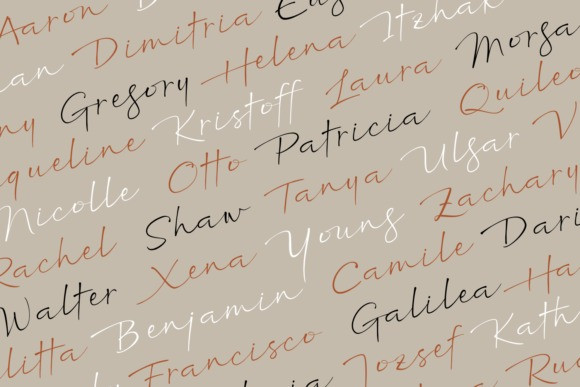 Aaron
an Dimitria Eug
ny Gregory Helena Itzhak
queline Kristoff Laura Morga
Nicolle Otto Patricia Quileo
Rachel Shaw Tanya Ulsar V
Walter Xena Young Zachary
litta Benjamin Camile Dari
Francisco Galilea Ha
Jozsef Kath